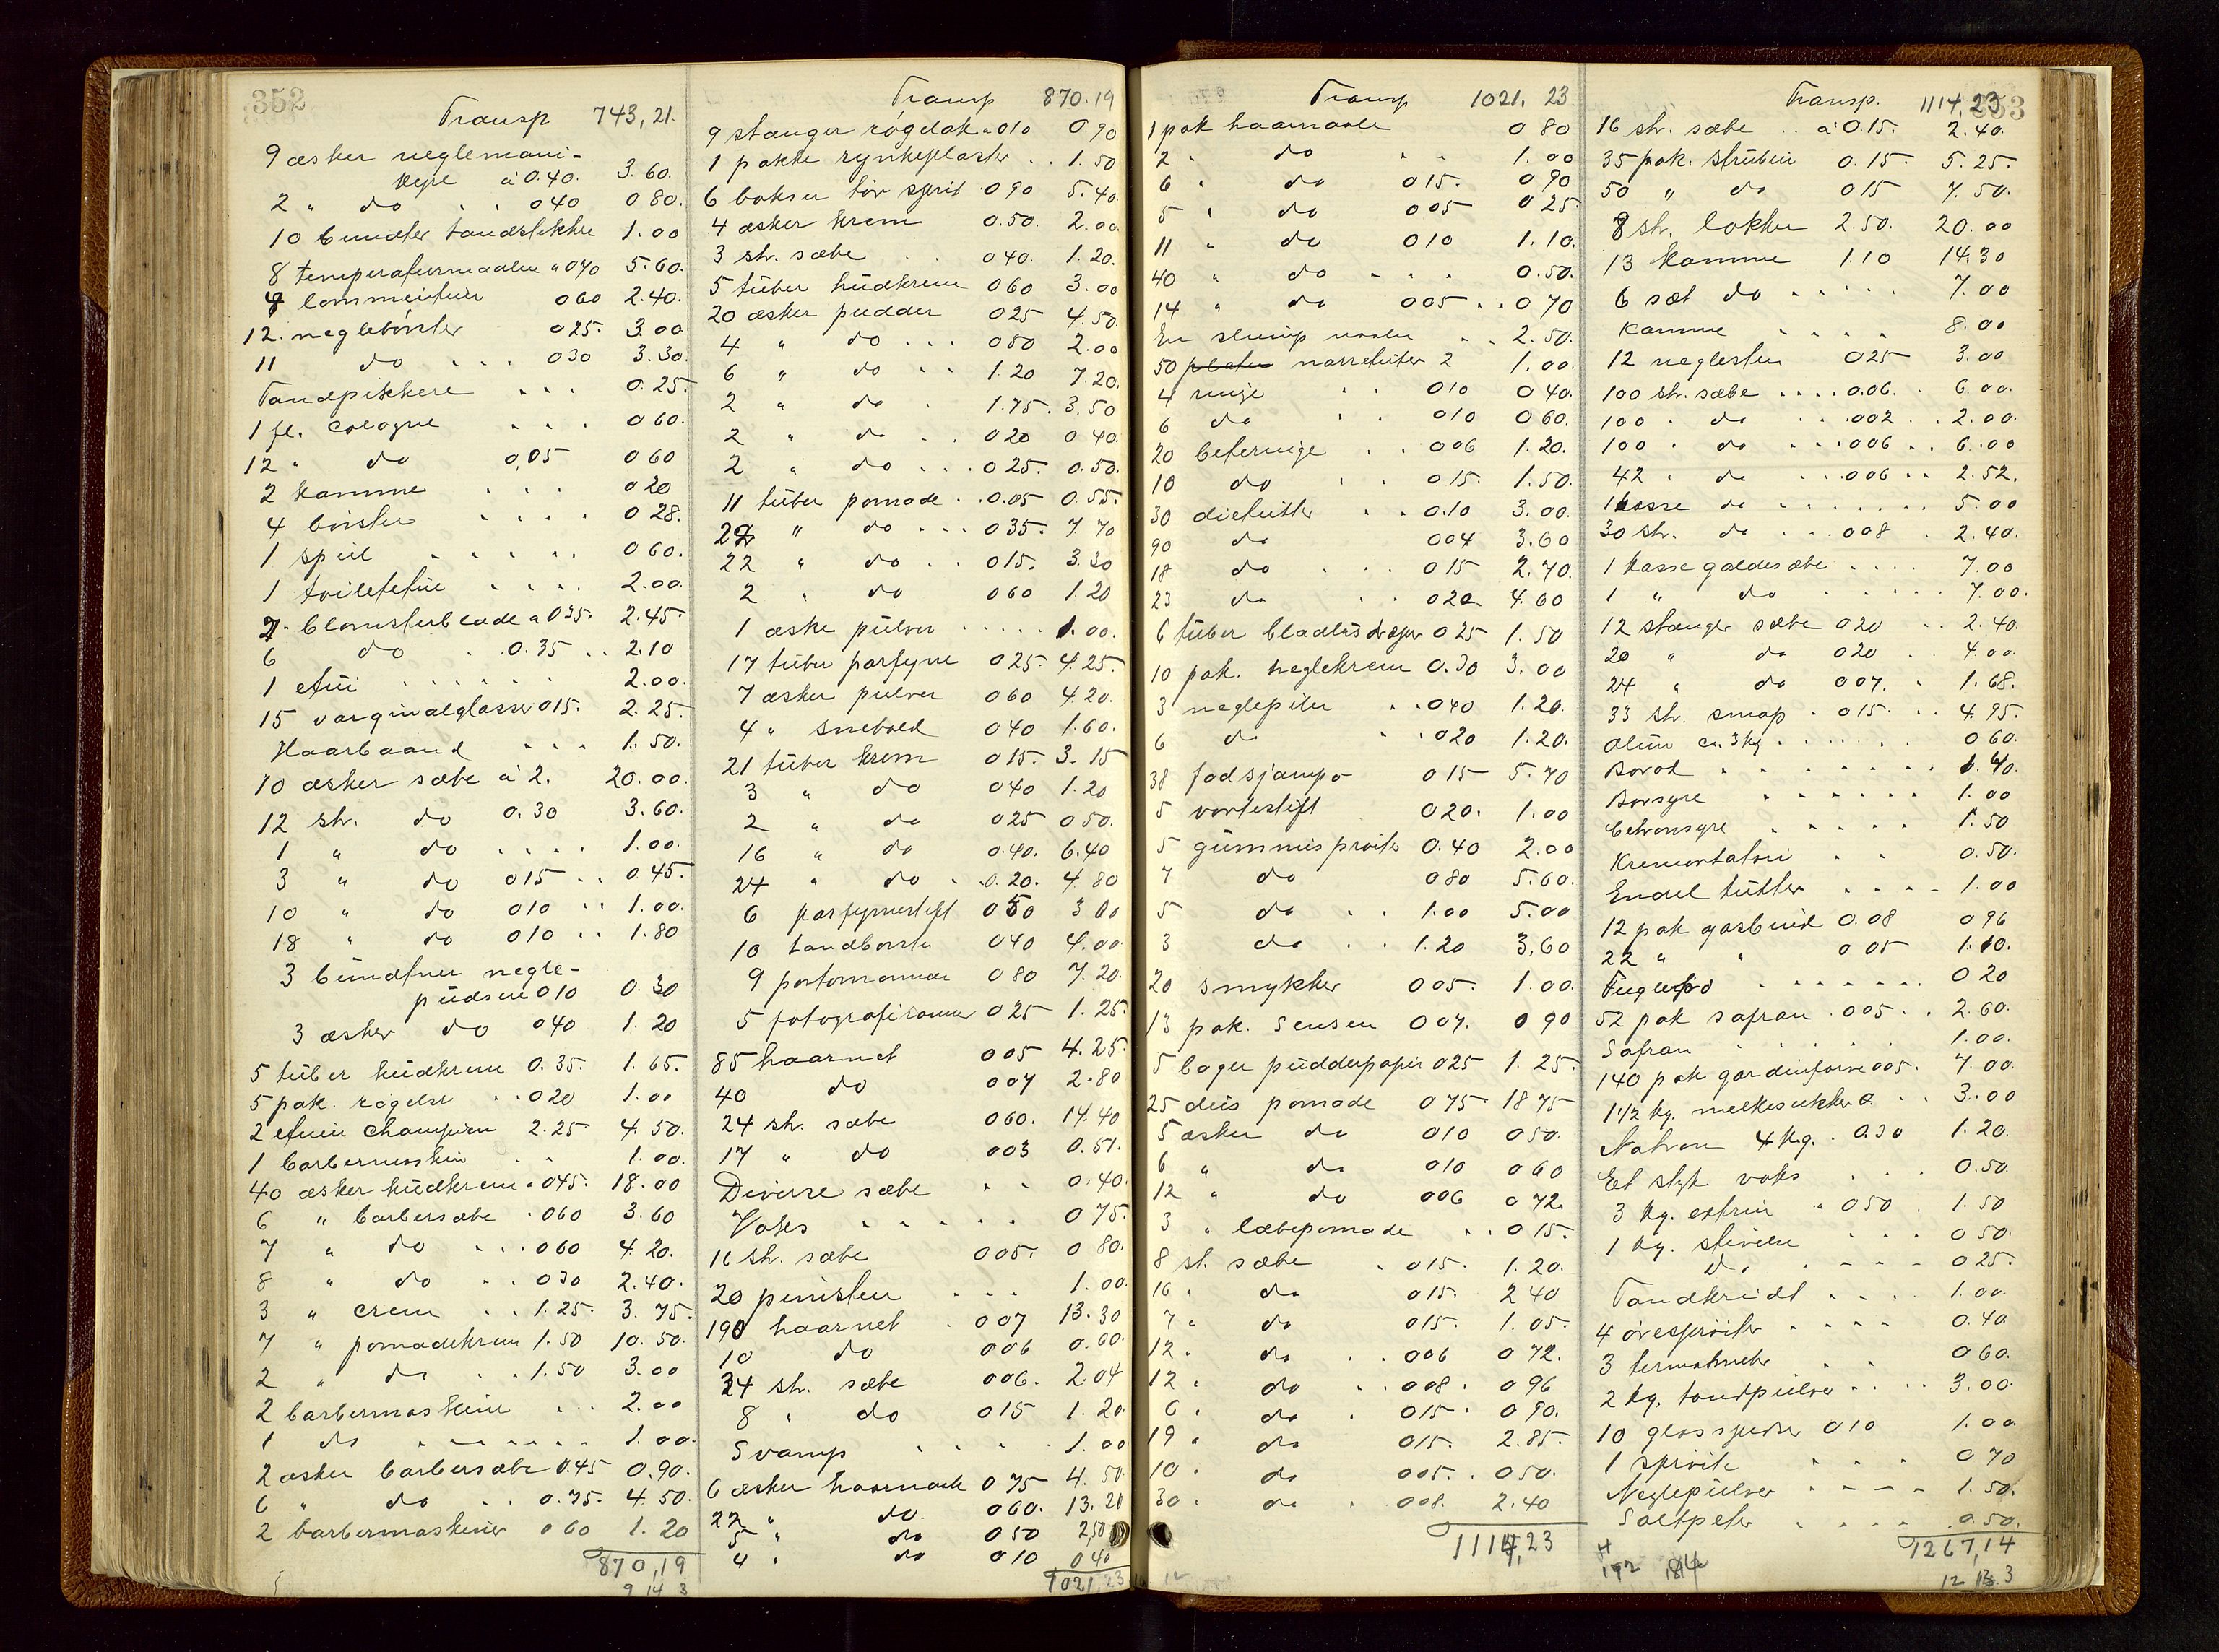 352
Transp 743,21.
9 æsker neglemani-
kyre á 0.40. 3.60.
2 " do . . 040 080.
10 bundter tandstikker 1.00
8 temperaturmaaler a 070 5.60.
4 lommeetuier 060 2.40.
12. neglebörster 025. 3.00
11 do . . . 030 3.30.
Tandpikkere . . . 0.25.
1 fl. cologne . . . 060.
12 " do 0,05 060
2 kamme . . . 020
4 börster . . . . 028.
1 speil . . . . . 060.
1 toiletetui . . . . 2.00.
7. blomsterblade a 035. 2.45.
6 do . 0.35 . . 2.10
1 etui . . . . . . 2.00.
15 varginalglasser 015. 2.25.
Haarbaand . . . 1.50.
10 æsker sæbe á 2. 20.00.
12 stk. do 0.30 3.60.
1 " do . . . . 1.00.
3 " do 015 . . 0.45.
10 " do 010 . . 1.00.
18 " do 010 . . 1.80
3 bundtner negle-
pudsere 010 0.30
3 æsker do 040 1.20
5 tuber hudkrem 0.35. 1.65.
5 pak. rögelse . . 020 1.00
2 etuier champion 2.25 4.50.
1 barbermaskin . . 1.00.
40 æsker hudkrem a 045. 18.00
6 " barbersæbe . 060 3.60
7 " do . . . 060 4.20.
8 " do . . 030 2.40.
3 " crem . . 1.25. 3.75.
7 " pomadekrem 1.50 10.50.
2 " do . . 1.50 3.00
2 barbermaskine . . . 2.00
1 do . . . . . . 1.00.
2 æsker barbersæbe 0.45 0.90.
6 " do . . 0.75. 4.50.
2 barbermaskiner 060 1.20
870,19
9 14 3
Transp 870.19
9 stænger rögelak a 010 0.90
1 pakke rynkeplaster . . 1.50
6 bokser tör sprit 090 5.40.
4 æsker krem 0.50. 2.00.
3 stk. sæbe . . 040. 1.20.
5 tuber hudkrem 060 3.00
20 æsker pudder 025 4.50.
4 " do . . . 050 2.00
6 " do . . 1.20 7.20.
2 " do . 1.75. 3.50
2 " do . . 020 040.
2 " do . . . 025. 0.50.
11 tuber pomade . . 0.05 0.55.
22 " do . . . 035. 7.70
22 " do . . 015. 3.30
2 " do 060 1.20
1 æske pulver . . . . . 1.00.
17 tuber parfyme 025. 4.25.
7 æsker pulver 060 4.20.
4 " snebold 040 1.60.
21 tuber krem 015. 3.15
3 " do 040 1.20
2 " do 025 050.
16 " do 0.40. 6.40
24 " do . 0.20. 4.80
6 parfymestift 050 300
10 tandborster 040 4.00
9 portomonnæ 080 7.20.
5 fotografirammer 025 1.25.
85 haarnet 005 4.25.
40 do 007 2.80
24 stk. sæbe 060. 14.40
17 " do 003 0.51.
Diverse sæbe . . 0.40.
Voks . . . . . 075.
16 stk. sæbe 005. 080.
20 penisten . . . 1.00.
190 haarnet . 007 13.30
10 do 006 0.60.
34 stk. sæbe 006. 2.04
8 " do 015 1.20
Svamp . . . . 1.00
6 æsker haarnaale 075 4.50
22 " do. 060. 13.20
5 " do 050 2,50
4 " do 010 040
1021,23
Transp 1021. 23
1 pak haarnaale 080
2 " do . . 1.00
6 " do 015. 090
5 " do 005 025
11 " do 010 1.10.
40 " do . . . 0.50.
14 " do 005 . . 070
En slump naaler . . 2.50.
50 narretuter 2 1.00.
4 ringe . . 010 040.
6 do . . 010 060.
20 beteringe . . 006 1.20.
10 do . . 015. 1.50.
30 dietutter . . 0.10 3.00.
90 do 004 3.60
18 do . . . 015 2.70.
23 do . . 020. 4.60
6 tuber bladlusdræper 025 1.50
10 pak. neglekrem 0.30 3.00
3 neglepiler . . 040 1.20.
6 do . . 020 1.20.
38 fodsjampo 015 5.70
5 vortestift 020. 1.00
5 gummispröiter 0.40 2.00
7 do 080 5.60.
5 do . . 1.00 5.00
3 do . . 1.20 3,60
20 smykker 005. 1.00.
13 pak. Sensen 007. 090
5 böger pudderpapir 025 1.25.
25 deis pomade 075 18 75
5 æsker do 010 050.
6 " do 010 060
12 " do 006 072.
3 " læbepomade . . 015.
8 st. sæbe . 015. 1.20.
16 " do 015. 240
7 " do 015. 1.05.
12 " do . . 006 072.
12 " do . . 008. 096
6 " do . 015. 090.
19 " do 015. 2.85.
10 " do 005. . 050.
30 " do . 008. 2.40
1114,23
353
Transp. 1114,23
16 stk. sæbe . . á 0.15. 2.40.
35 pak. strubin 0.15. 5.25.
50 " do 015 7.50.
8 stk. lokker 2.50. 20.00
13 kamme 1.10 14.30
6 sæt do . . . . . 7.00
Kamme . . . . . 8.00
12 neglesten 025 3.00
100 stk. sæbe . . . . 0.06. . 6.00.
100 " do . . . 002 . . 2.00.
100 " do . . . 006 . . 6.00
42 " do . . . 006 . . 2.52.
1 kasse do . . . . . . . 5.00
30 stk. do . . . 008 . 2.40.
1 kasse galdesæbe . . . . 7.00
1 " do . . . . . . 7.00.
12 stænger sæbe 020 . . 2.40.
20 " do 020 . . 4.00.
24 " do 007. . 1.68.
33 stk. smap . 015. . . 4.95.
Alun ca. 3 kg . . . . . . 060.
Borat . . . . . . . . 1.40.
Borsyre . . . . . . 1.00
Citronsyre . . . . . 1.50
Kremortatari . . 0.50.
Endel tutter . . . . 1.00
12 pak gasbind 0.08 096
22 " " 005 1.10.
Fuglefrö . . . . . . 020
52 pak safran . 005. . . 2.60.
Safran . . . . . . 1.00.
140 pak gardinfarve 005. 7.00.
1 1/2 kg. melkesukker a . . 3.00
Natron 4 kg. . 0.30 1.20.
Et styk voks . . . 0.50.
3 kg. extrin " 050 . 1.50
1 kg. stivelse . . . 050.
Do . . . . 025.
Tandkridt . . . . 1.00.
4 örespröiter . . . . 0.40
3 termometer . . 060.
2 kg. tandpulver . . . . 3.00.
10 glasspidser 010 1.00
1 spröite . . . . 070
Neglepulver . . . . 1.50.
Saltpeter . . . . . 0.50.
1267,14
12 13.3